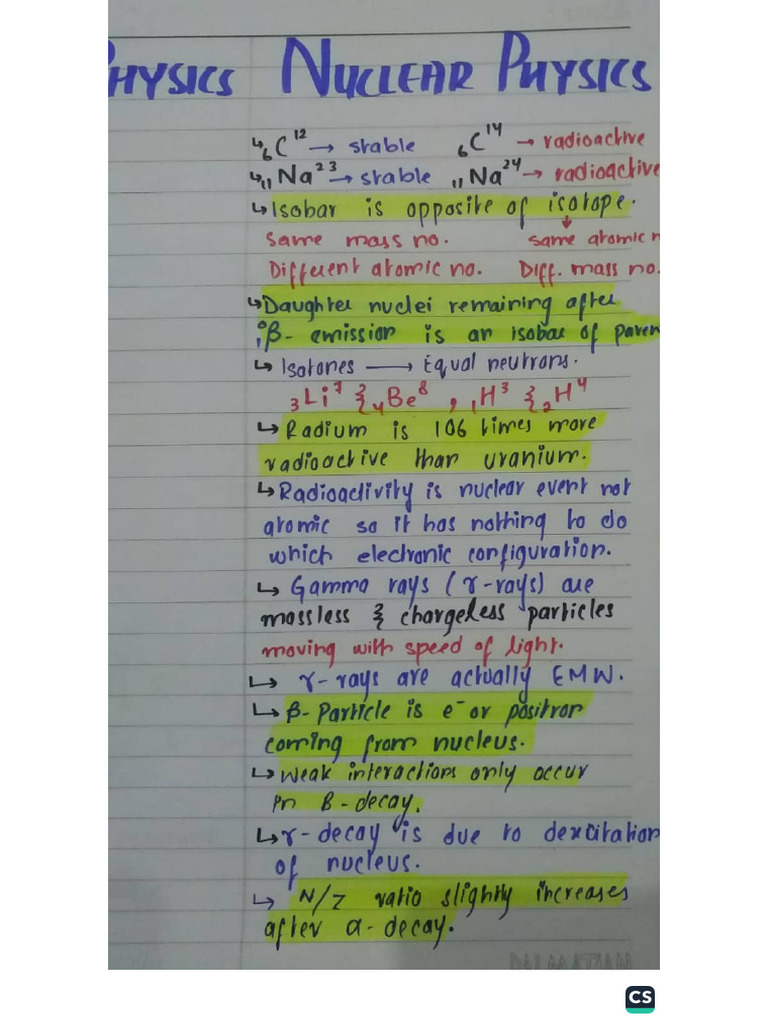 PHYSICS NUCLEAR PHYSICS
↳ ₆C¹² → stable ₆C¹⁴ → radioactive
↳ ₁₁Na²³ → stable ₁₁Na²⁴ → radioactive
↳ Isobar is opposite of isotope.
Same mass no. same atomic n
Different atomic no. Diff. mass no.
↳ Daughter nuclei remaining after
β- emission is an isobar of paren
↳ Isotones → Equal neutrons.
₃Li⁷ & ₄Be⁸ , ₁H³ & ₂H⁴
↳ Radium is 106 times more
radioactive than uranium.
↳ Radioactivity is nuclear event not
atomic so it has nothing to do
which electronic configuration.
↳ Gamma rays (γ-rays) are
massless & chargeless particles
moving with speed of light.
↳ γ-rays are actually EMW.
↳ β-Particle is e⁻ or positron
coming from nucleus.
↳ Weak interactions only occur
in β-decay.
↳ γ-decay is due to dexcitation
of nucleus.
↳ N/Z ratio slightly increases
after α-decay.
CS